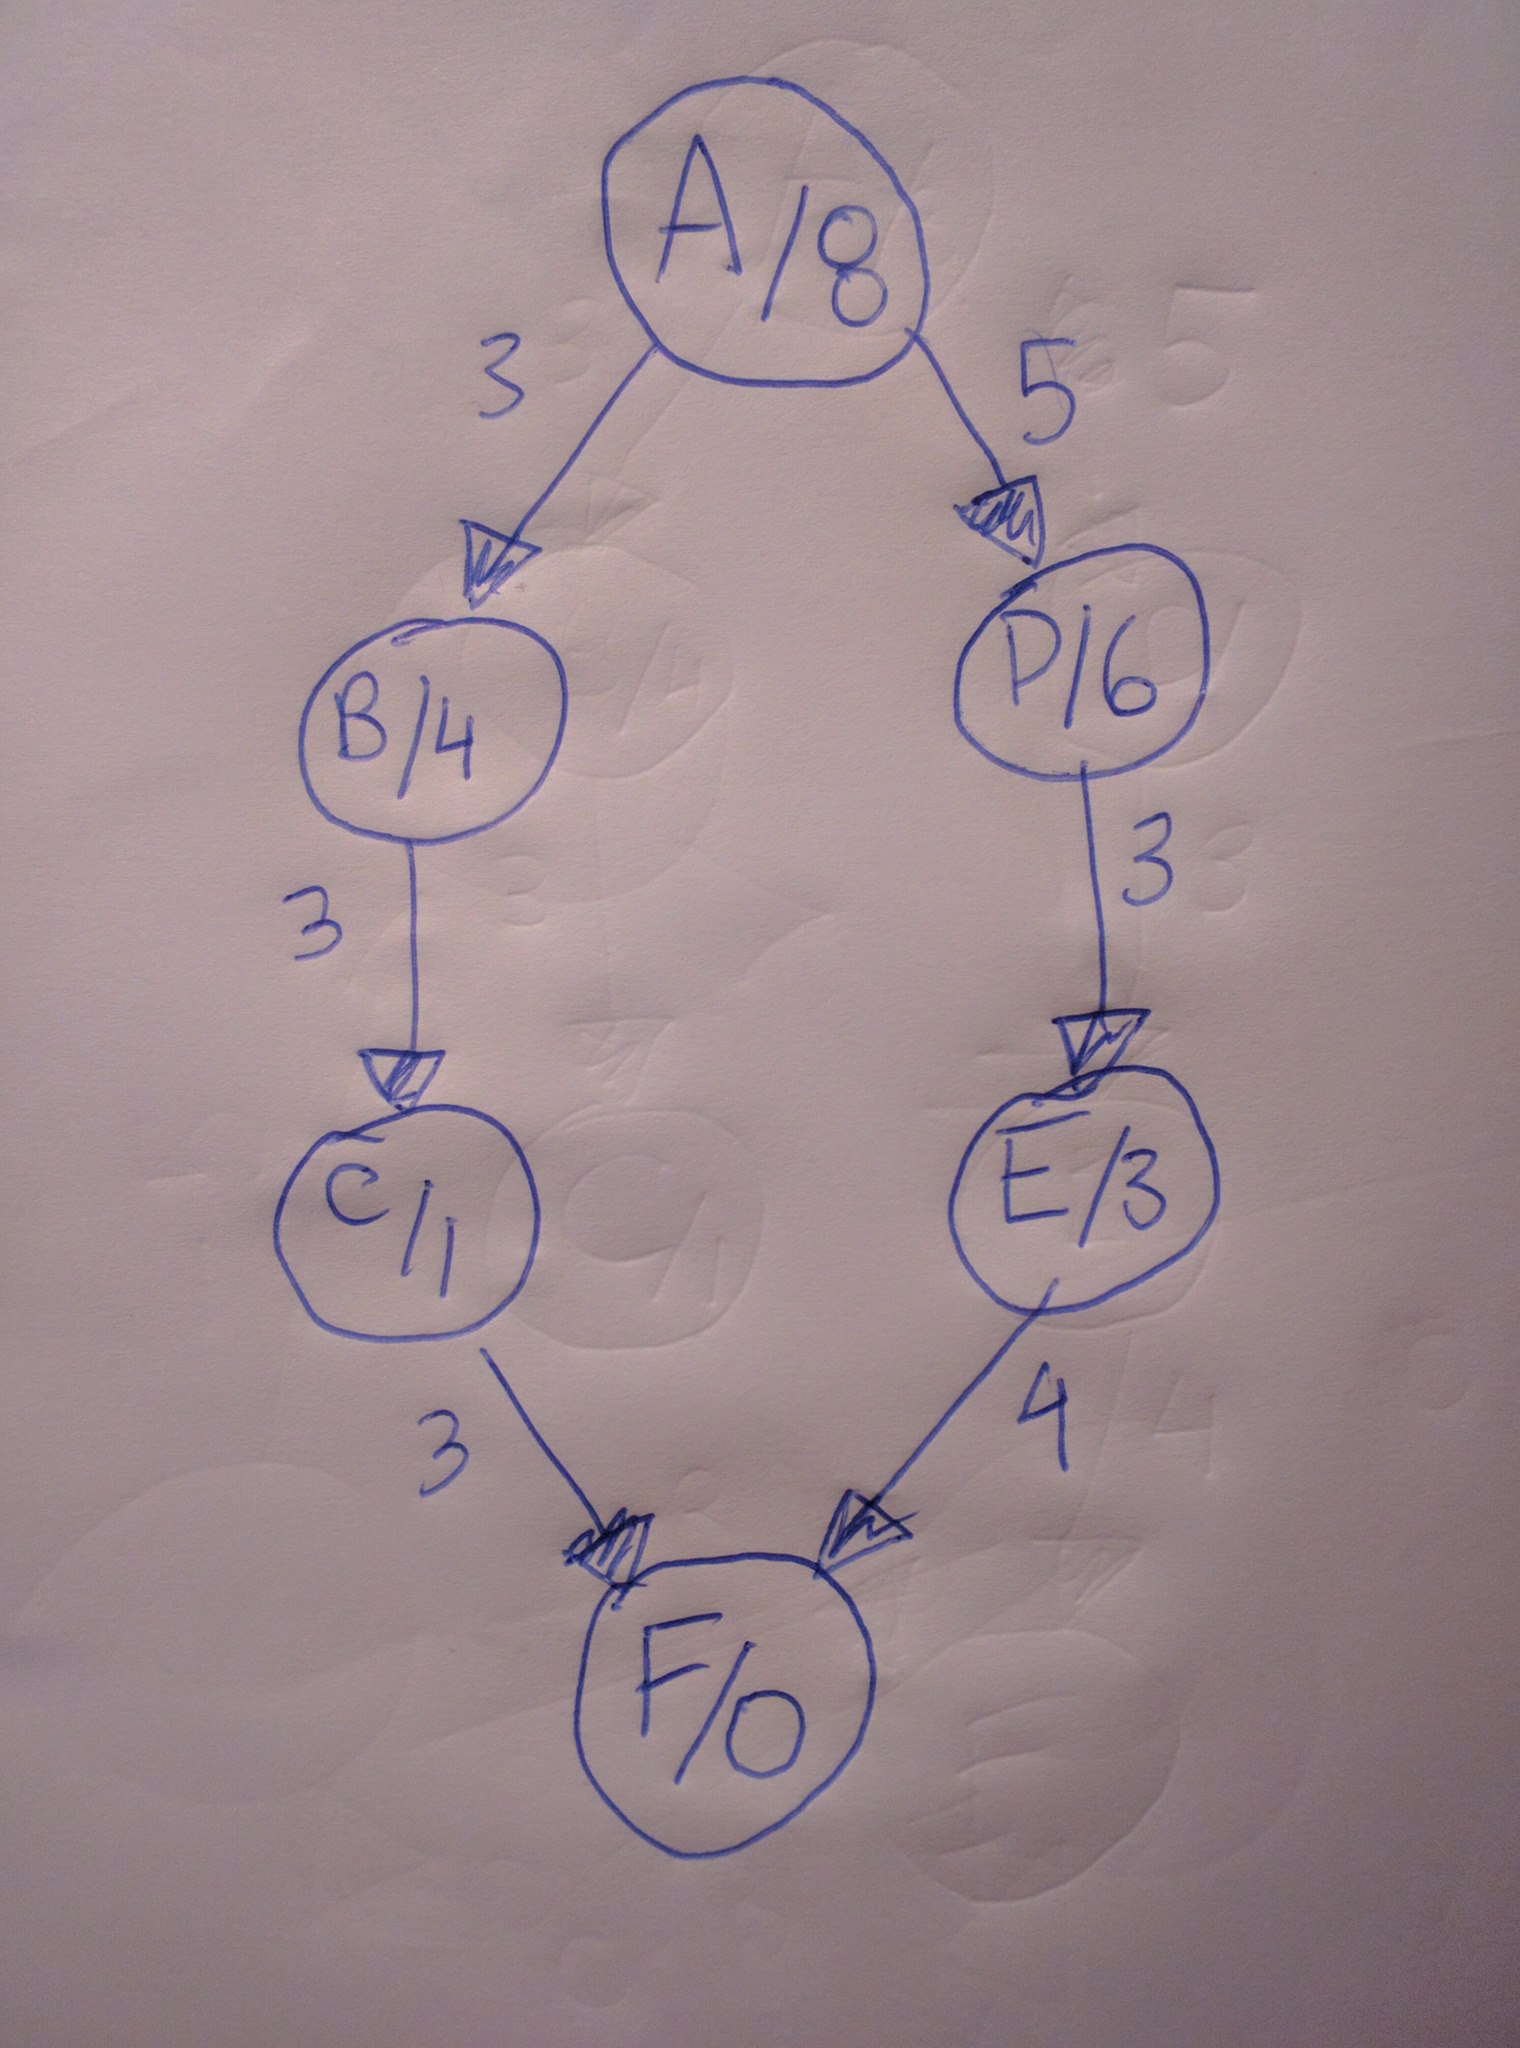 A/8
3
5
B/4
D/6
3
3
C/1
E/3
3
4
F/0